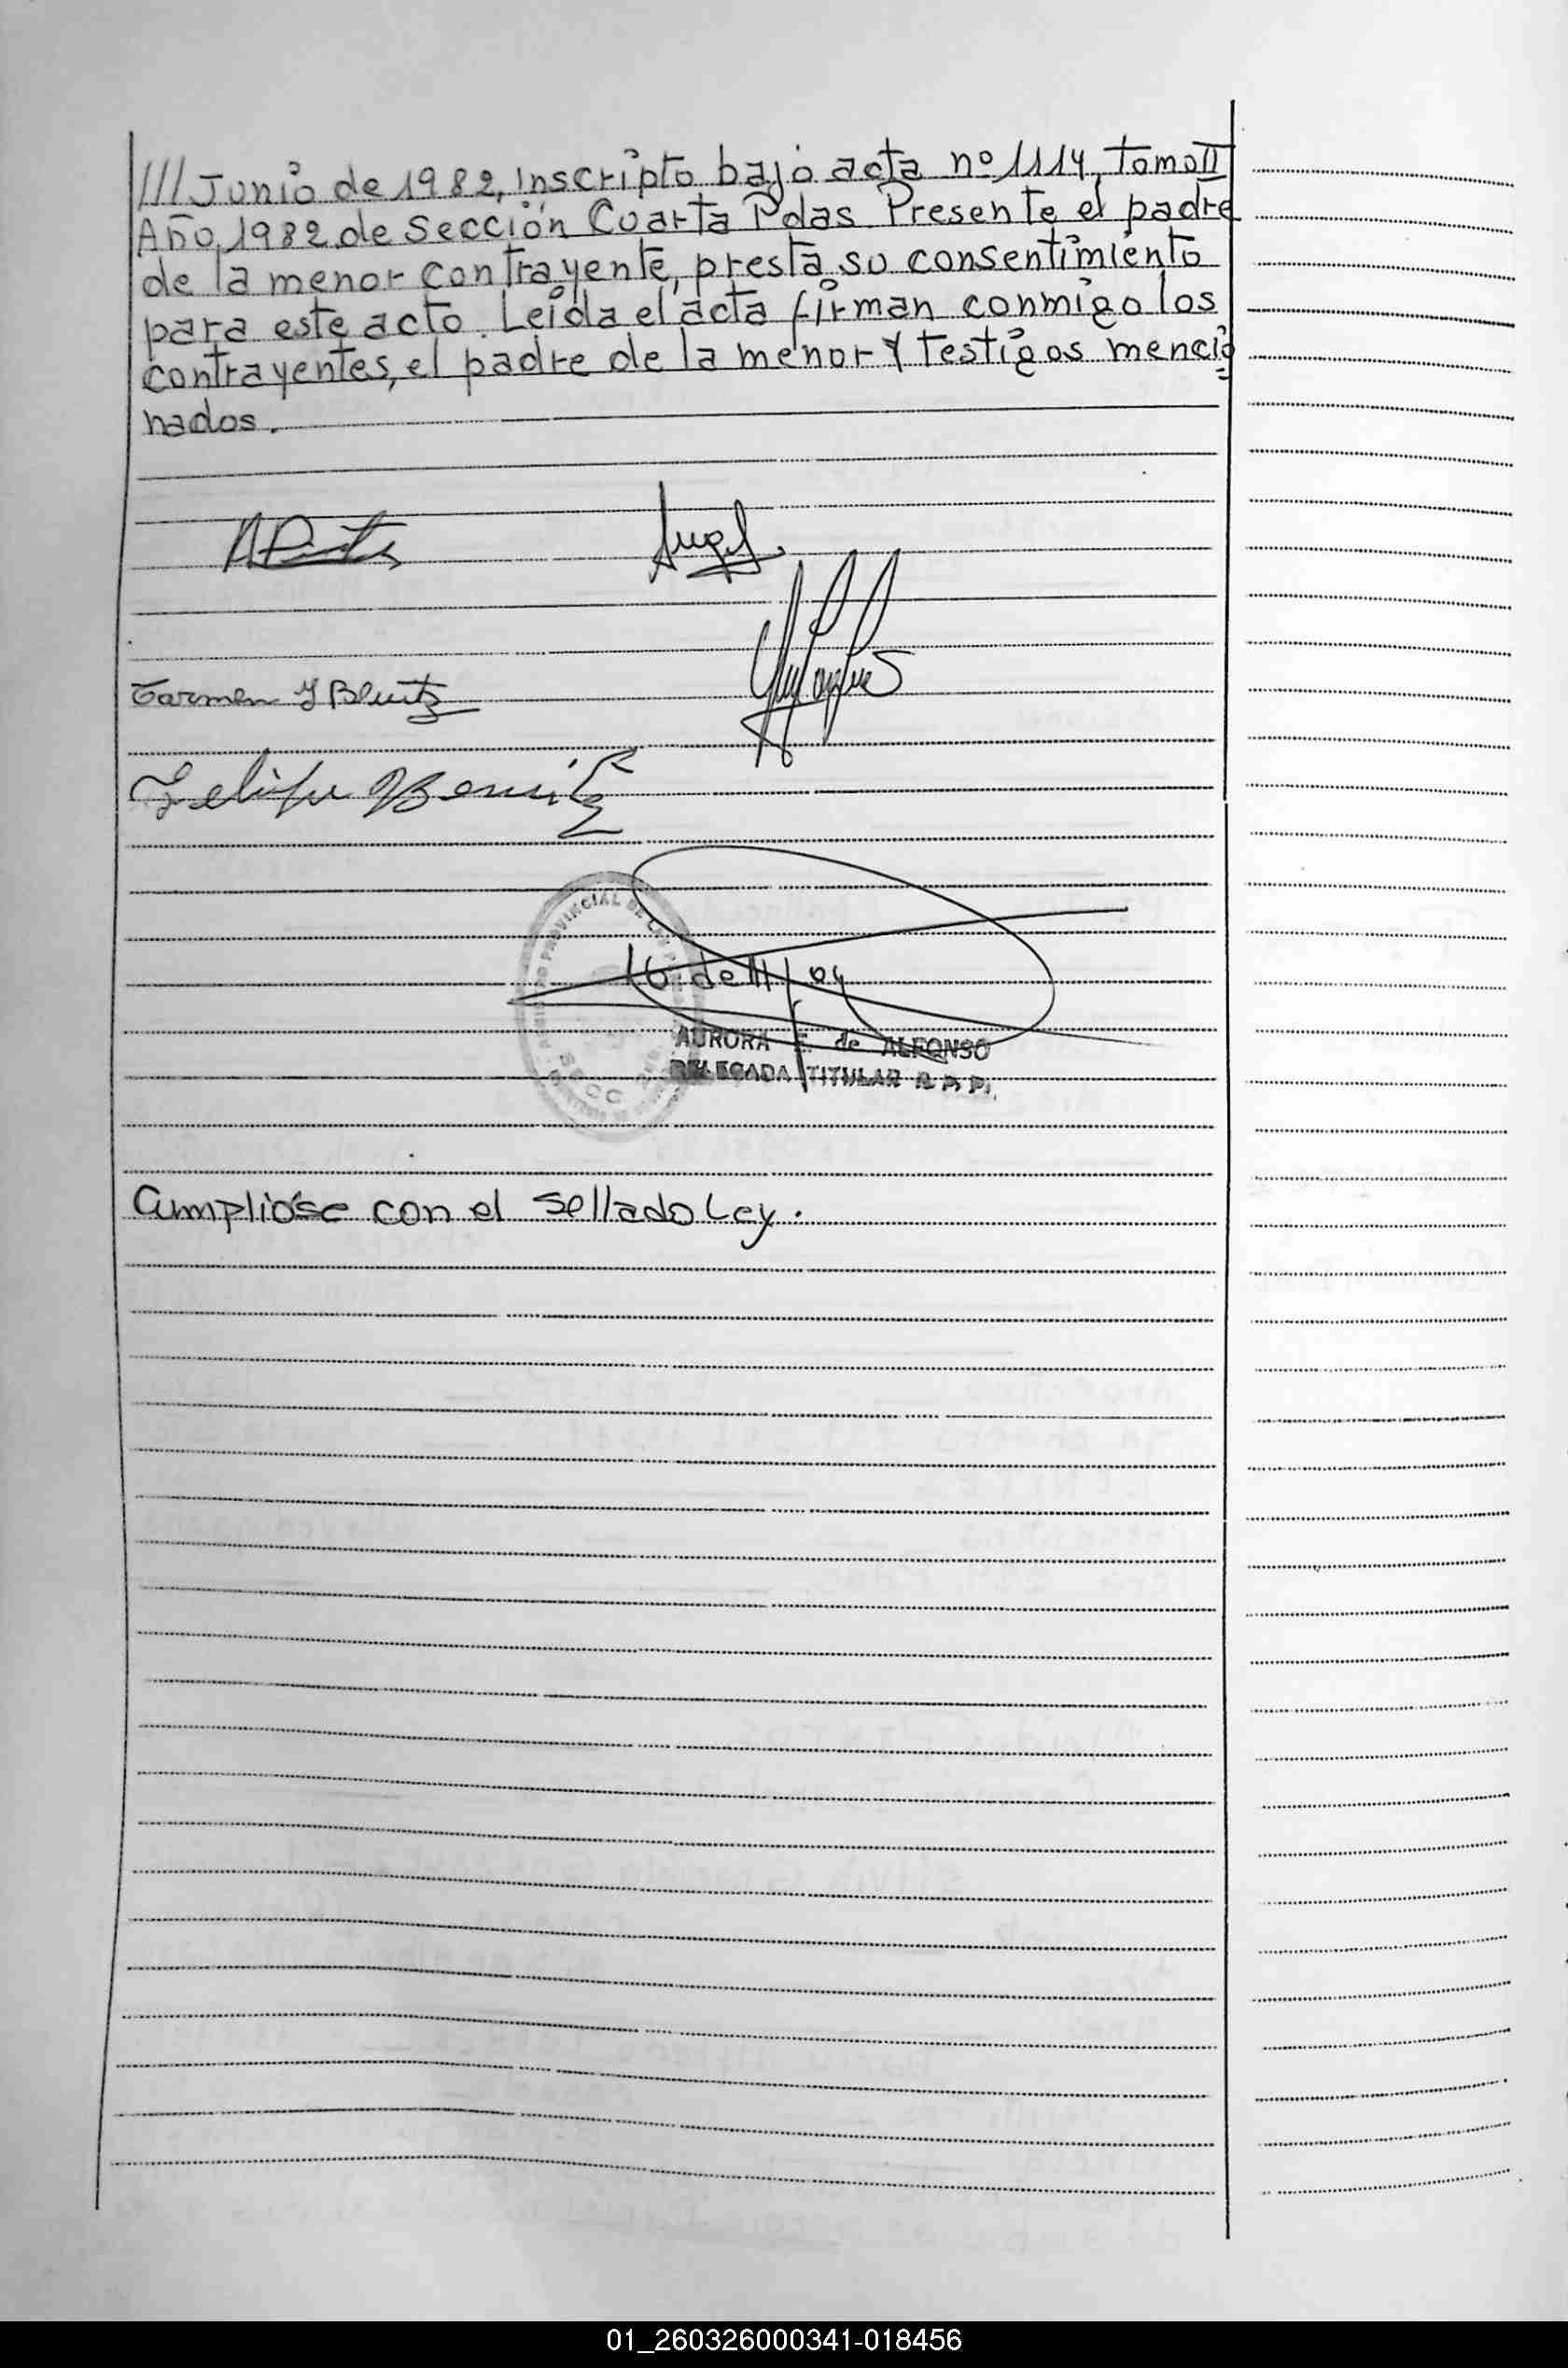 /// Junio de 1982, inscripto bajo acta nº 1114, tomo II
Año 1982 de Sección Cuarta Pdas. Presente el padre
de la menor contrayente, presta su consentimiento
para este acto. Leida el acta firman conmigo los
contrayentes, el padre de la menor y testigos mencio
nados.
Angel
Carmen
Felipe Benitz
PROVINCIAL DE
16 de 11/04
AURORA E. de ALFONSO
DELEGADA TITULAR R. P. P.
SECC
Cumplióse con el sellado Ley.
01_260326000341-018456